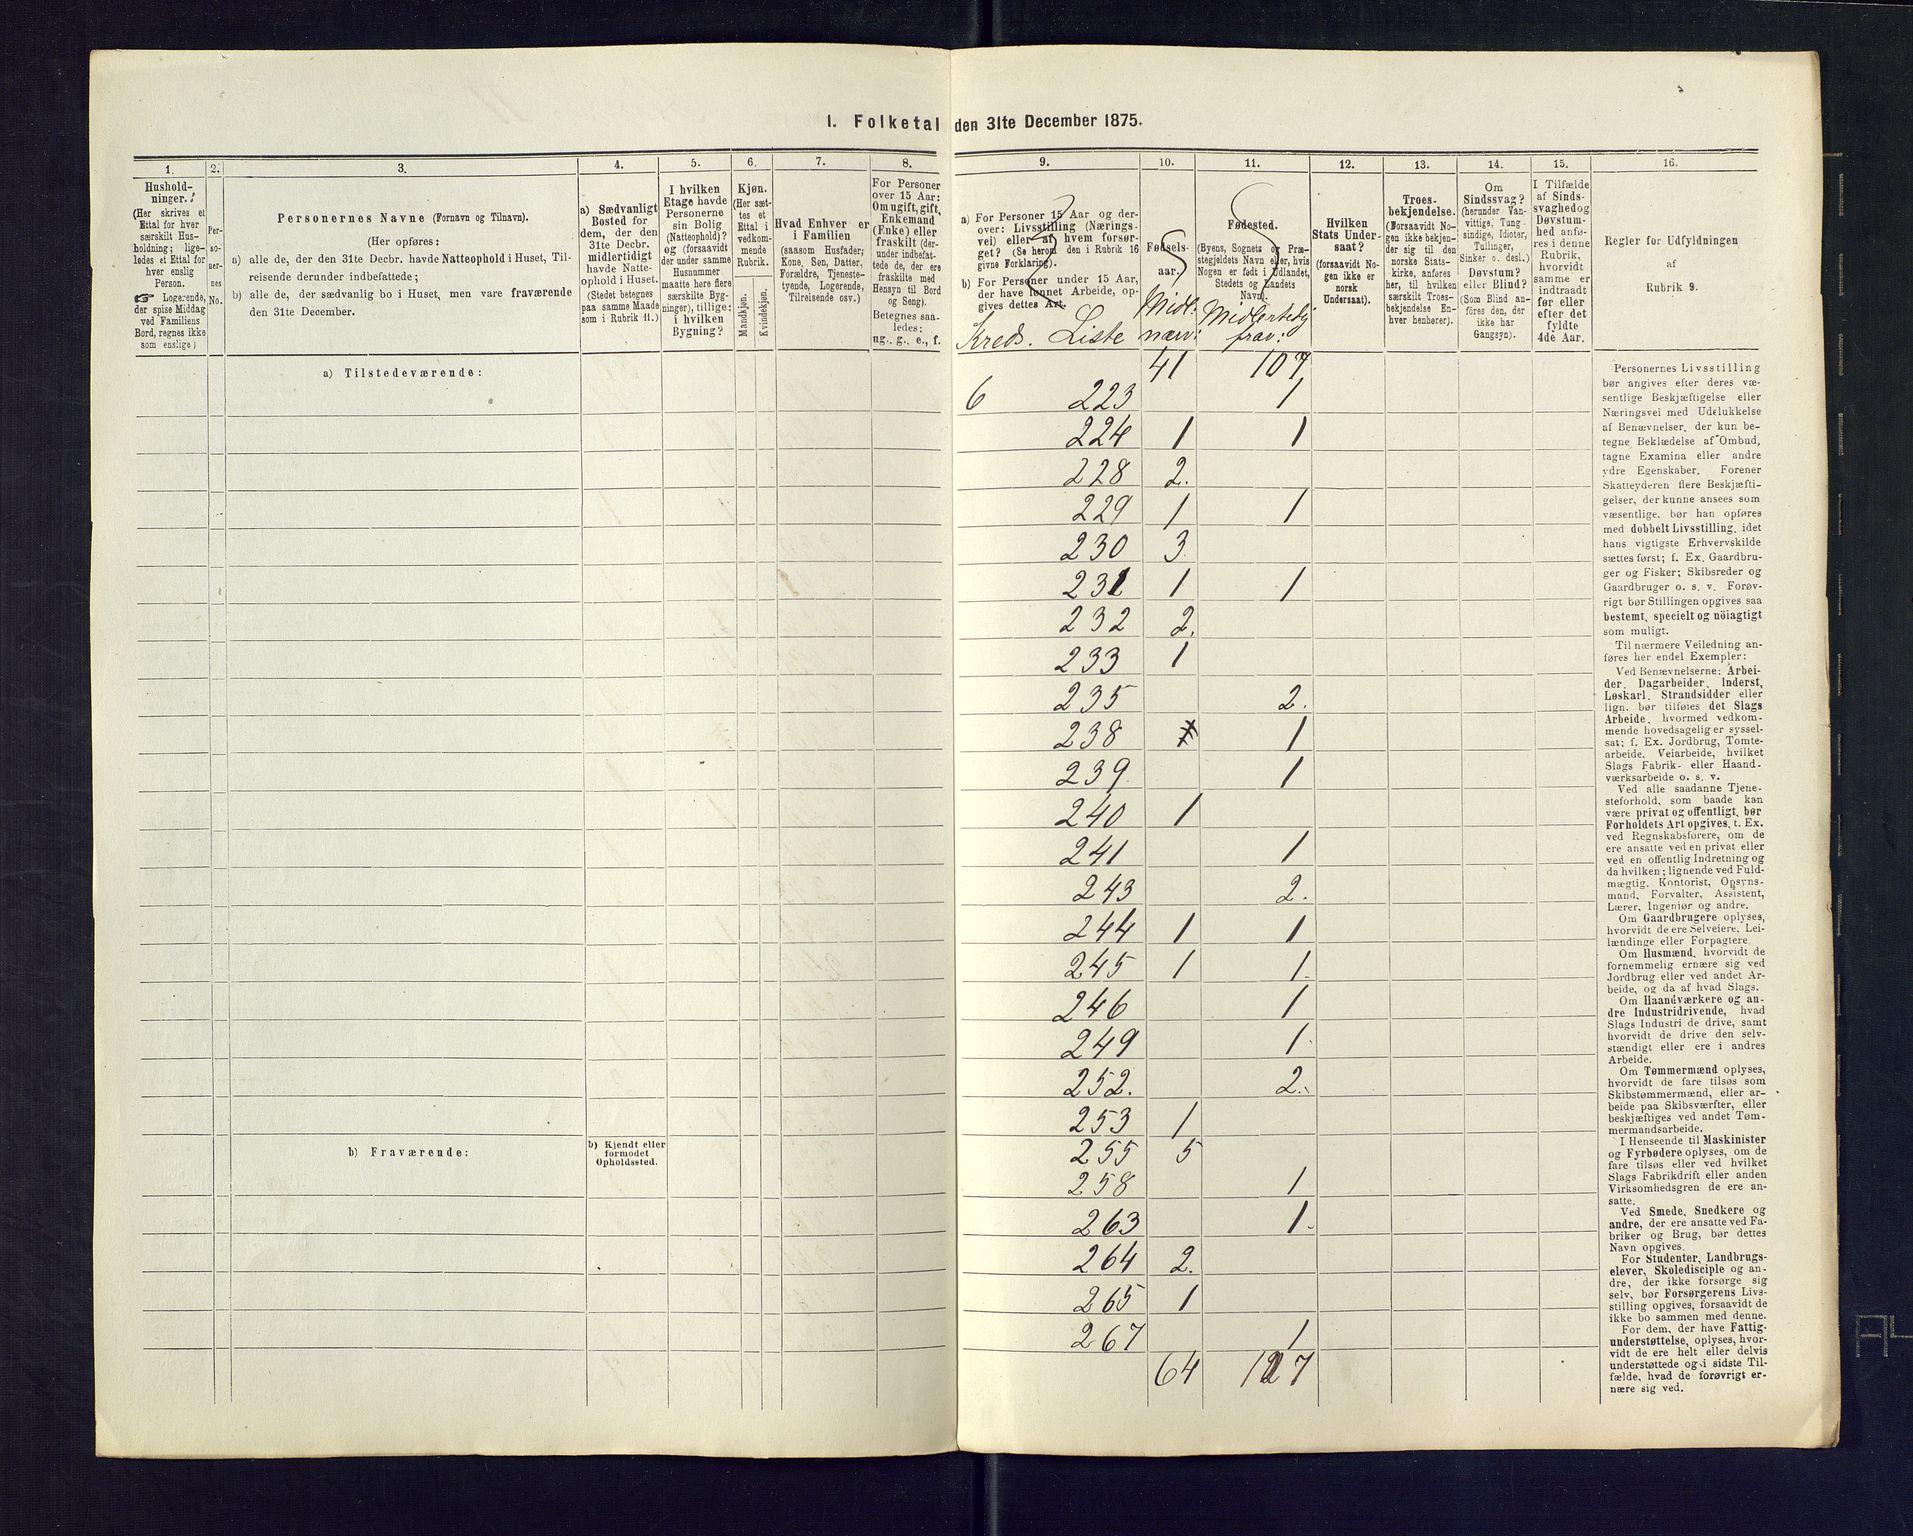 1. Folketal den 31te December 1875.
1. 2. 3. 4. 5. 6. 7. 8. 9. 10. 11. 12. 13. 14. 15. 16.
Hushold-
ninger.
(Her skrives et
Ettal for hver
særskilt Hus-
holdning; lige-
ledes et Ettal for
hver enslig
Person.
☞ Logerende,
der spise Middag
ved Familiens
Bord, regnes ikke
som enslige)
Per-
so-
ner-
nes
No.
Personernes Navne (Fornavn og Tilnavn).
(Her opføres:
a) alle de, der den 31te Decbr. havde Natteophold i Huset, Til-
reisende derunder indbefattede;
b) alle de, der sædvanlig bo i Huset, men vare fraværende
den 31te December.
a) Sædvanligt
Bosted for
dem, der den
31te Decbr.
midlertidigt
havde Natte-
ophold i Huset.
(Stedet betegnes
paa samme Maade
som i Rubrik 11.)
I hvilken
Etage havde
Personerne
sin Bolig
(Natteophold)?
og (forsaavidt
der under samme
Husnummer
maatte høre flere
særskilte Byg-
ninger), tillige:
i hvilken
Bygning?
Kjøn.
(Her sæt-
tes et
Ettal i
vedkom-
mende
Rubrik.
Mandkjøn.
Kvindekjøn.
Hvad Enhver er
i Familien
(saasom Husfader,
Kone, Søn, Datter,
Forældre, Tjeneste-
tyende, Logerende,
Tilreisende osv.)
For Personer
over 15 Aar:
Om ugift, gift,
Enkemand
(Enke) eller
fraskilt (der-
under indbefat-
tede de, der ere
fraskilte med
Hensyn til Bord
og Seng).
Betegnes saa-
ledes:
ug., g., e., f.
a) For Personer 15 Aar og der-
over: Livsstilling (Nærings-
vei) eller af hvem forsør-
get? (Se herom den i Rubrik 16
givne Forklaring).
b) For Personer under 15 Aar,
der have lønnet Arbeide, op-
gives dettes Art.
Fødsels-
aar.
Fødested.
(Byens, Sognets og Præ-
stegjeldets Navn eller, hvis
Nogen er født i Udlandet,
Stedets og Landets
Navn).
Hvilken
Stats Under-
saat?
(forsaavidt No-
gen ikke er
norsk
Undersaat).
Troes-
bekjendelse.
(Forsaavidt No-
gen ikke bekjen-
der sig til den
norske Stats-
kirke, anføres
her, til hvilken
særskilt Troes-
bekjendelse En-
hver henhører).
Om
Sindssvag?
(herunder Van-
vittige, Tung-
sindige, Idioter,
Tullinger,
Sinker o. desl.)
Døvstum?
eller Blind?
(Som Blind an-
føres den, der
ikke har
Gangsyn).
I Tilfælde
af Sinds-
svaghed og
Døvstum-
hed anfø-
res i denne
Rubrik,
hvorvidt
samme er
indtraadt
før eller
efter det
fyldte
4de Aar.
Regler for Udfyldningen
af
Rubrik 9.
Kreds. Liste Midl: nærv: Midlertidig frav:
a) Tilstedeværende:
41 107
6 223 1
224 1 1
228 2.
229 1 1
230 3
231 1 1
232 2.
233 1
235 2.
238 1
239 1
240 1
241 1
243 2.
244 1 1
245 1 1.
246 1
249 1.
252. 2.
253 1
b) Fraværende:
b) Kjendt eller
formodet
Opholdssted.
255 5
258 1
263 1.
264 2.
265 1
267 1
64 127
Personernes Livsstilling
bør angives efter deres væ-
sentlige Beskjæftigelse eller
Næringsvei med Udelukkelse
af Benævnelser, der kun be-
tegne Beklædelse af Ombud,
tagne Examina eller andre
ydre Egenskaber. Forener
Skatteyderen flere Beskjæfti-
gelser, der kunne ansees som
væsentlige, bør han opføres
med dobbelt Livsstilling, idet
hans vigtigste Erhvervskilde
sættes først; f. Ex. Gaardbru-
ger og Fisker; Skibsreder og
Gaardbruger o. s. v. Forøv-
rigt bør Stillingen opgives saa
bestemt, specielt og nöiagtigt
som muligt.
Til nærmere Veiledning an-
føres her endel Exempler:
Ved Benævnelserne: Arbei-
der, Dagarbeider, Inderst,
Løskarl, Strandsidder eller
lign. bør tilføies det Slags
Arbeide, hvormed vedkom-
mende hovedsagelig er syssel-
sat; f. Ex. Jordbrug, Tomte-
arbeide, Veiarbeide, hvilket
Slags Fabrik- eller Haand-
værksarbeide o. s. v.
Ved alle saadanne Tjene-
steforhold, som baade kan
være privat og offentligt, bør
Forholdets Art opgives, t. Ex.
ved Regnskabsførere, om de
ere ansatte ved en privat eller
ved en offentlig Indretning og
da hvilken; lignende ved Fuld-
mægtig, Kontorist, Opsyns-
mand, Forvalter, Assistent,
Lærer, Ingeniør og andre.
Om Gaardbrugere oplyses,
hvorvidt de ere Selveiere, Lei-
lændinge eller Forpagtere.
Om Husmænd, hvorvidt de
fornemmelig ernære sig ved
Jordbrug eller ved andet Ar-
beide, og da af hvad Slags.
Om Haandværkere og an-
dre Industridrivende, hvad
Slags Industri de drive, samt
hvorvidt de drive den selv-
stændigt eller ere i andres
Arbeide.
Om Tømmermænd oplyses,
hvorvidt de fare tilsøs som
Skibstømmermænd, eller ar-
beide paa Skibsværfter, eller
beskjæftiges ved andet Tøm-
mermandsarbeide.
I Henseende til Maskinister
og Fyrbødere oplyses, om de
fare tilsøs eller ved hvilket
Slags Fabrikdrift eller anden
Virksomhedsgren de ere an-
satte.
Ved Smede, Snedkere og
andre, der ere ansatte ved Fa-
briker og Brug, bør dettes
Navn opgives.
For Studenter, Landbrugs-
elever, Skoledisciple og an-
dre, der ikke forsørge sig
selv, bør Forsørgerens Livs-
stilling opgives, forsaavidt de
ikke bo sammen med denne.
For dem, der have Fattig-
understøttelse, oplyses, hvor-
vidt de ere helt eller delvis
understøttede og i sidste Til-
fælde, hvad de forøvrigt er-
nære sig ved.